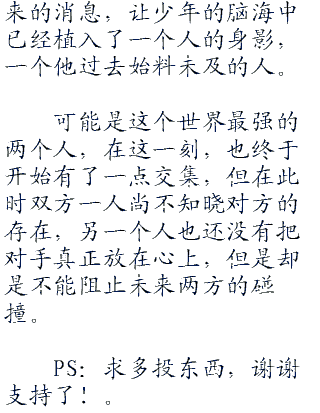 来的消息，让少年的脑海中
已经植入了一个人的身影，
一个他过去始料未及的人。
可能是这个世界最强的
两个人，在这一刻，也终于
开始有了一点交集，但在此
时双方一人尚不知晓对方的
存在，另一个人也还没有把
对手真正放在心上，但是却
是不能阻止未来两方的碰
撞。
PS：求多投东西，谢谢
支持了！。